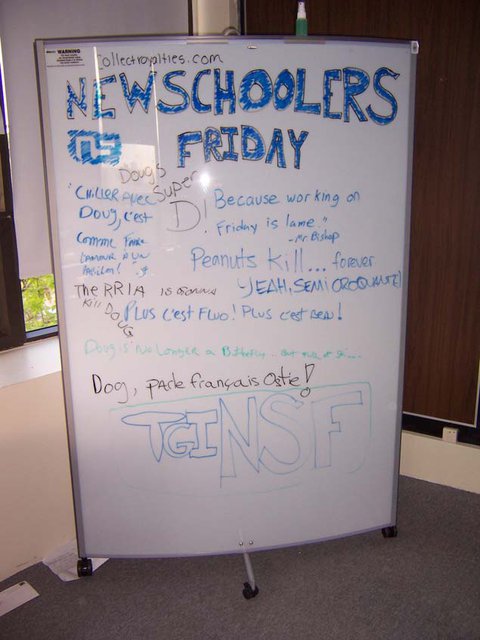 WARNING
Collectroyalties.com
NEWSCHOOLERS
NS
FRIDAY
Doug's
Super
D!
"CHILLER AVEC
DOUG, C'EST
COMME FAIRE
L'AMOUR À UN
Because working on
Friday is lame."
-Mr Bishop
Peanuts Kill... forever
YEAH, SEMI CROQUANTE)
The RRIA is
Kill DOUG
PLUS C'EST FLUO! PLUS C'EST BEAU!
Doug is no longer a Butterfly... But
Dog, parle français Ostie!
TGI NSF